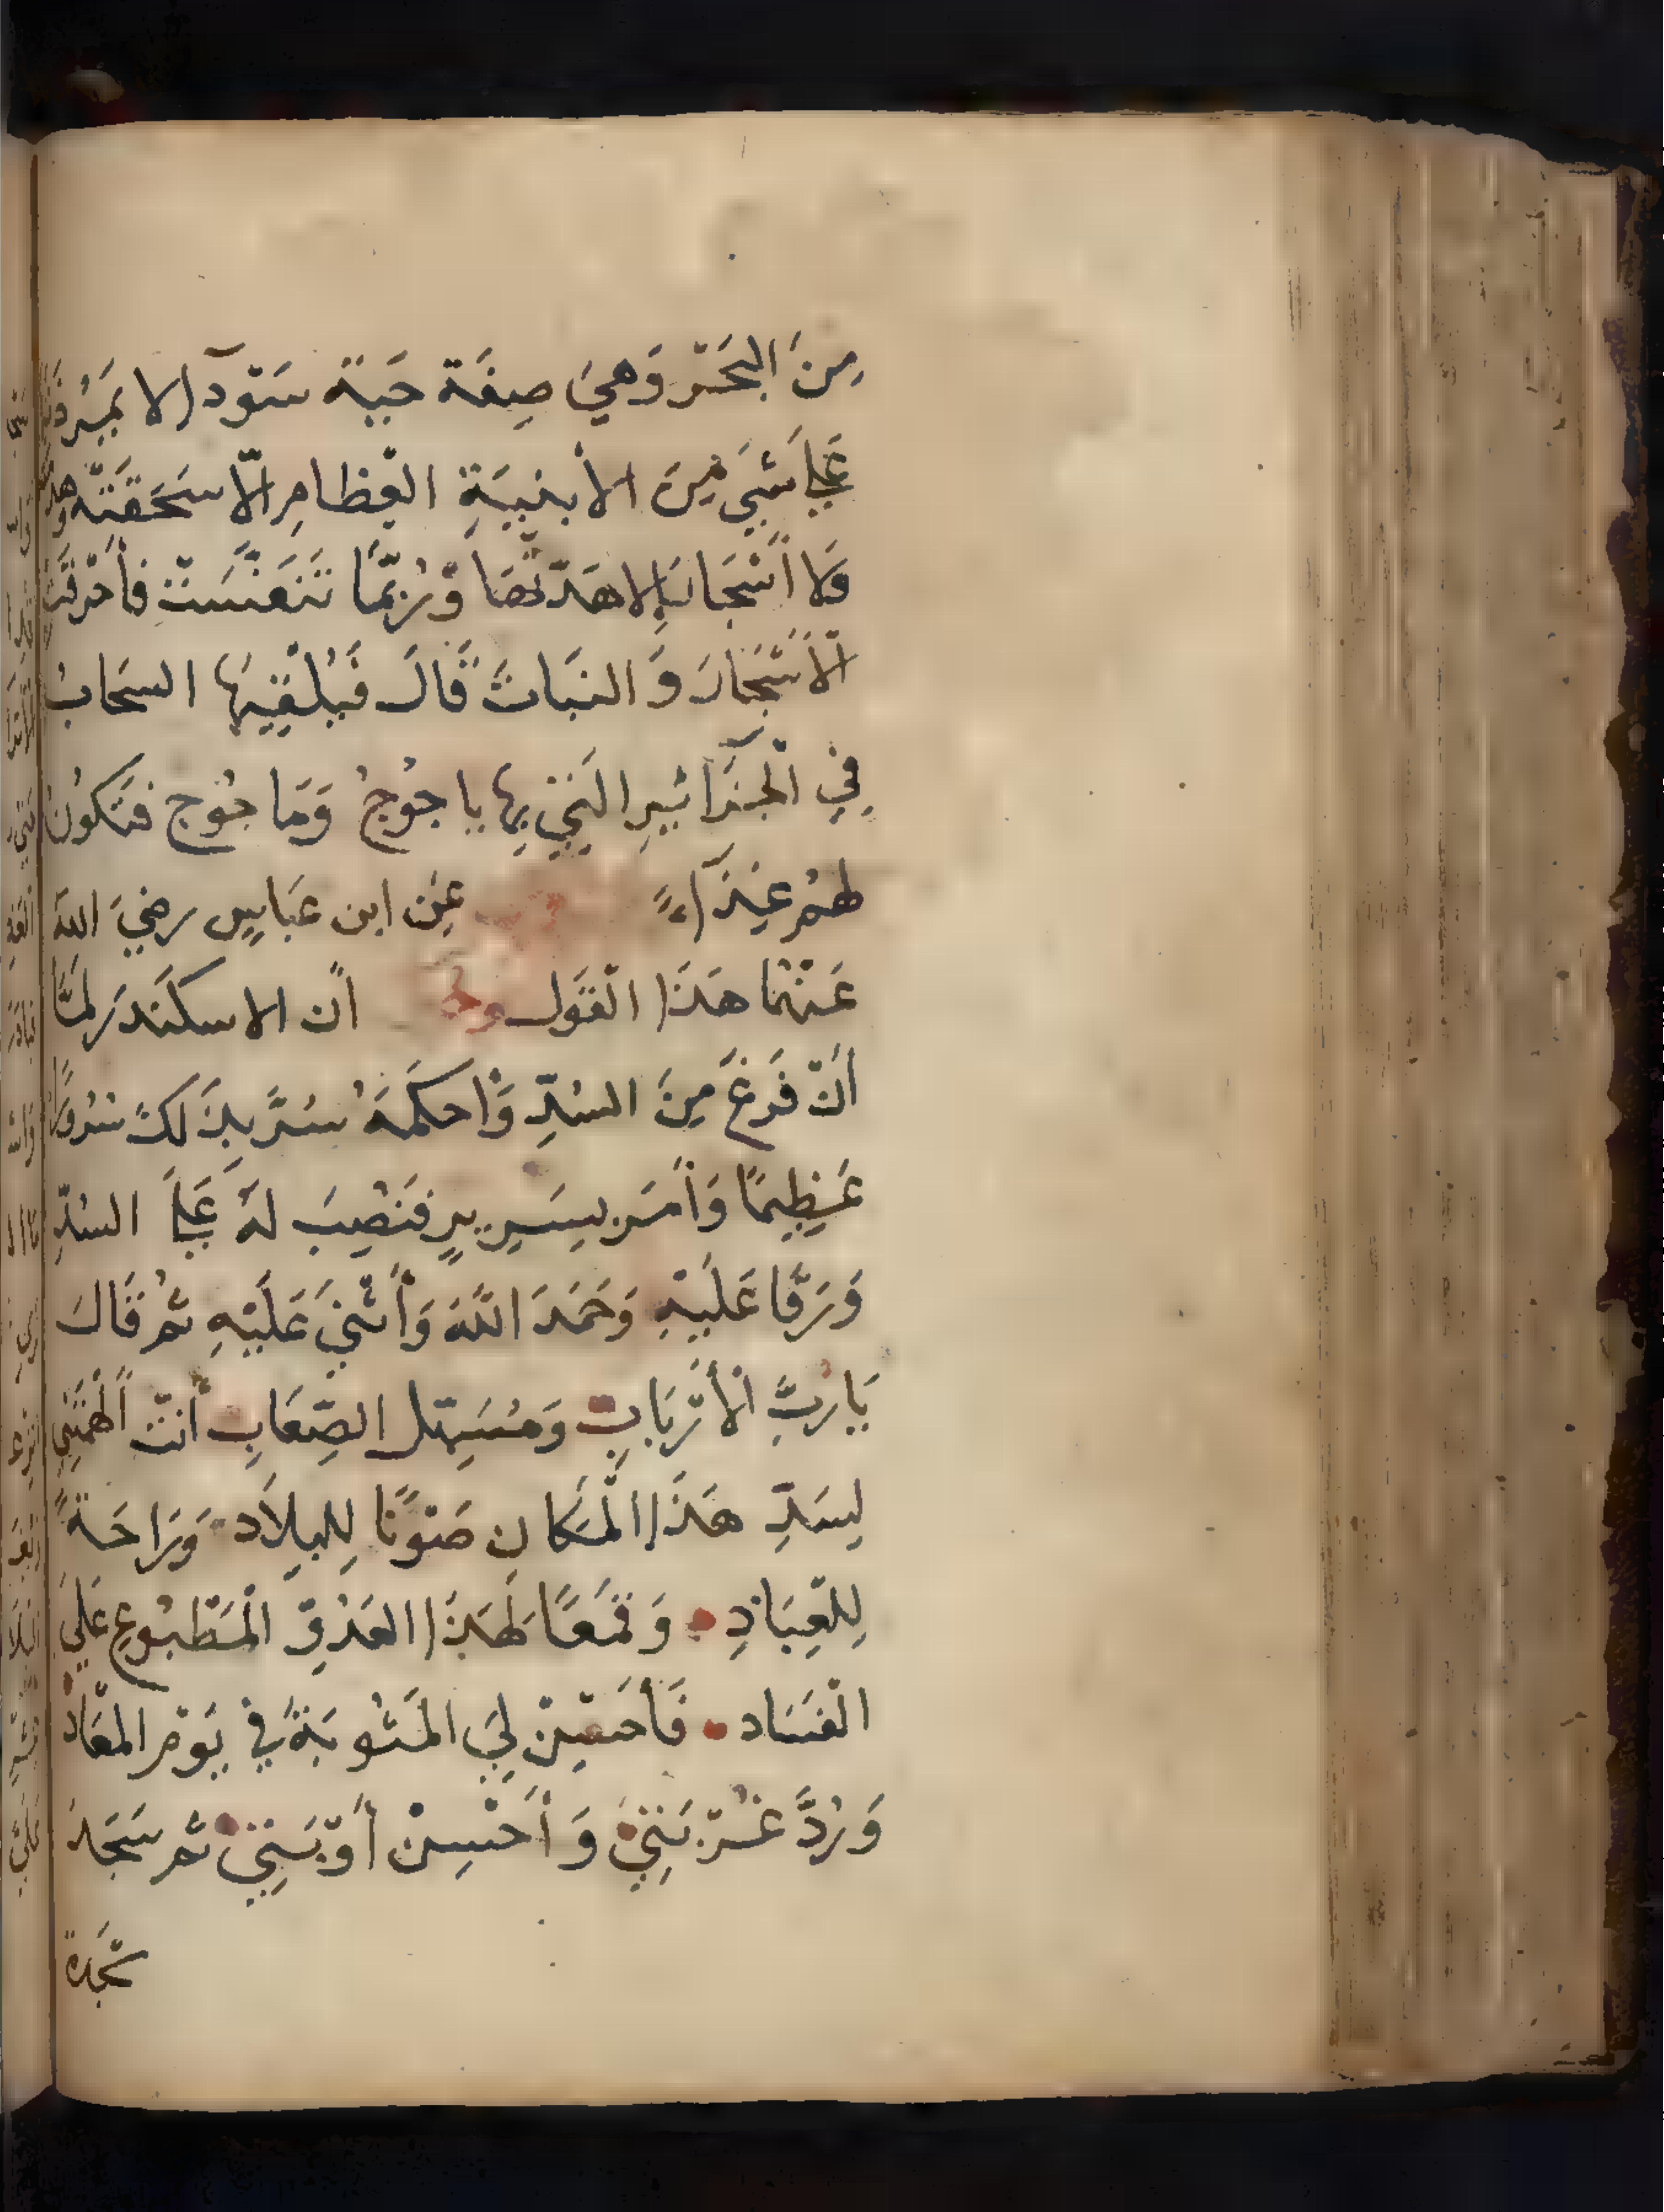 مِنَ البَحَرْ وَهِيَ صِفَة حَية سَوْدآ لا يَمِيرُ ذَنَبهَا
عَلَى شَيْ مِنَ الأبنِيَةِ العِظامِ الّا سَحَقَتْه وهدته
وَلا أَشْجَارَ إِلا هَدّتْهَا وَرُبّمَا تَنَفَّسَتْ فأحْرقَت
الأَشْجَارَ وَ النَبَاتَ قَالَ فَيُلْقِيهَا السَحَابُ
فِي الْجَزَآئيرِ الَتِي بِهَا يا جُوْجُ وَمَا جُوْج فتَكُونُ
لهُمْ غِذَآءً عَن ابن عَبَاسٍ رضِيَ اللهُ
عَنْهُمَا هَذَا الْقَوْل انّ الاسكَنْدَر لمّا
أَنْ فَرَغَ مِنَ السُدِّ وَأحكَمَهُ سُرَّ بِذَلكَ سُرُورًا
عَظِيمًا وَأَمَرَ بِسَرِيرٍ فَنَصِبَ لهُ عَلَى السُدِّ
وَرَقَّا عَلَيْهِ وَحَمَدَ اللَّهَ وَأَثْنىَ عَلَيْهِ ثمُ قَالَ
يَا رَبَّ الأَرْبَابِ وَمُسَهِّل الصِّعَابِ أَنْتَ أَلْهَمْتَنِي
لِسَدِّ هَذَا الْمَكَانِ صَوْنًا لِلبِلاَد وَرَاحَةً
لِلْعِبَادِ وَقَمْعًا لِهَذَا العَدُوِّ الْمَطْبُوعِ عَلىَ
الْفَسَاد فَأَحْسِنْ لِيَ المَثُوبَةَ في يَوْمِ المعَادْ
وَرُدَّ غُرْبَتِي وَ أَحْسِنْ أَوْبَتِي ثم سَجَدَ
سَجْدَة